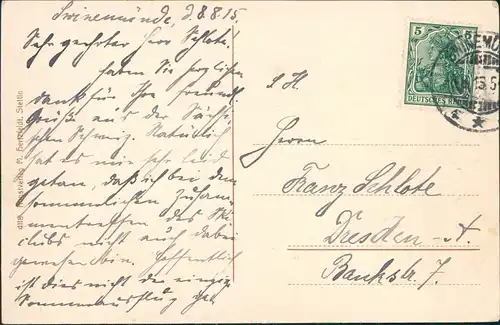 Swinemünde, d. 8.8.15.
Sehr geehrter Herr Schlote.
haben Sie herzlichen
Dank für Ihre freundl.
Grüße aus der Sächsi-
schen Schweiz. Natürlich
hat es mir sehr leid
getan, daß ich bei dem
sommerlichen Zusam-
mentreffen des Ski
clubs nicht auch dabei
gewesen bin. Hoffentlich
ist dies nicht der einzige
Sommerausflug
5
DEUTSCHES REICH
S. H.
Herrn
Franz Schlote
Dresden-A.
Bankstr. 7.
Hertzfeldt, Stettin